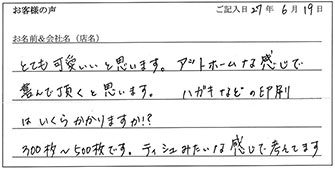 お客様の声 ご記入日 27年 6月 19日
お名前&会社名(店名)
とても可愛いいと思います。アットホームな感じで
喜んで頂くと思います。 ハガキなどの印刷
はいくらかかりますか!?
300枚〜500枚です。ティシュみたいな感じで考えてます